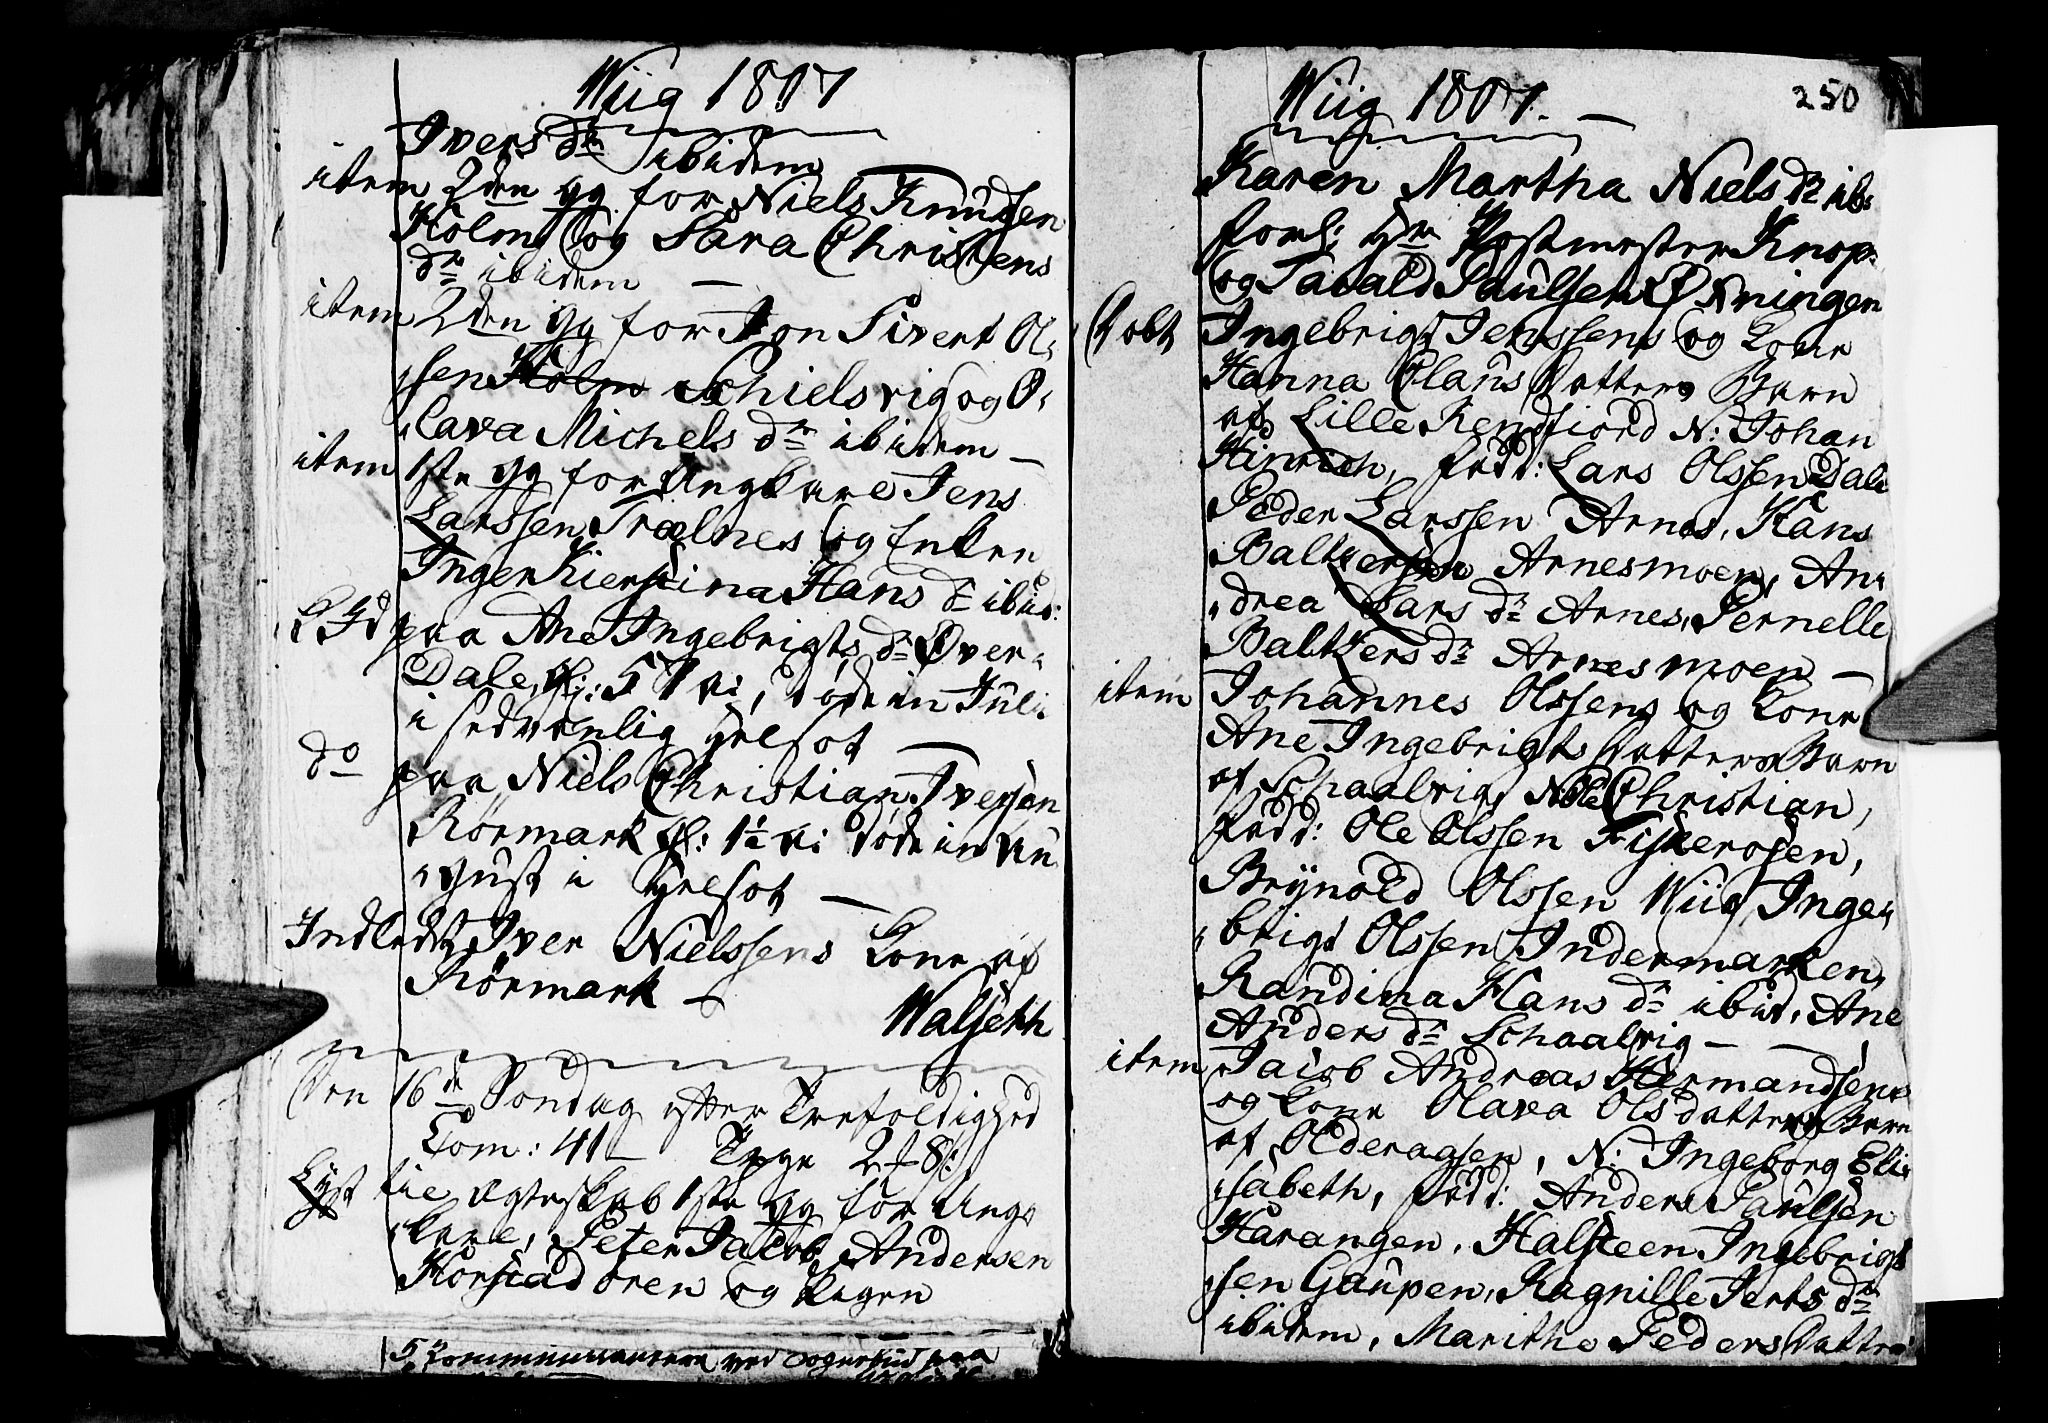 Wiig 1807
Ivers dr ibidem
item 2den Gg for Niels Knudsen
Holm og Sara Christens
dr ibidem —
item 2den Gg for Jon Sivert Ol,
sen Holm Schielsvig og O,
lava Michels dr ibidem —
item 1ste Gg for Ungkare Jens
Larssen Trælnes og Enken
Inger Kierstina Hans dr ibid:
paa Ane Ingebrigts dr Øver,
Dale, gl: 57 Ar, døde in Juli
i sedvanlig Helsot —
do paa Niels Christian Iversen
Rörmark gl: 1½ Ar døde in Au
gust i Helsot —
Indledt Iver Nielssens Kone af
Rörmark —
Walseth
Den 16de Søndag efter Trefoldighed
Com: 41 — Tavle 2 ƒ 8ß
Lyst til Ægteskab 1ste Gg for Ung,
kare, Peter Jacob Andersen
Horstadören og Pigen
5 Communicantere ved Sognebud paa
Wiig 1807. —
250
Karen Martha Niels dr ib:
forl: Hr Postmester Knop
og Tavald Paulsen Ønningen
Döbt Ingebrigt Jenssens og Kone
Hanna Olaus Datters Barn
af Lille Rendfiord N: Johan
Hinrich, Fadd: Lars Olssen Dale
Peder Larssen Arnes, Hans
Baltzersen Arnesmoen, An,
drea Lars dr Arnes, Pernelle
Baltzers dr Arnesmoen —
item Johannes Olssens og Kone
Ane Ingebrigts Datters Barn
af Schaalvig N: Ole Christian,
Fadd: Ole Olssen Fiskerosen,
Brynold Olssen Wiig Inge,
brigt Olssen Indermarken,
Randina Hans dr ibid, Ane
Anders dr Schaalvig — —
item Jacob Andreas Hermandsens
og Kone Olava Olsdatters Barn
af Olderagsen, N: Ingeborg Eli,
sabeth, Fadd: Anders Paulsen
Harangen, Halsteen Ingebrigt
sen Gaupen, Ragnille Jerts dr
ibidem, Marithe Peders Datter